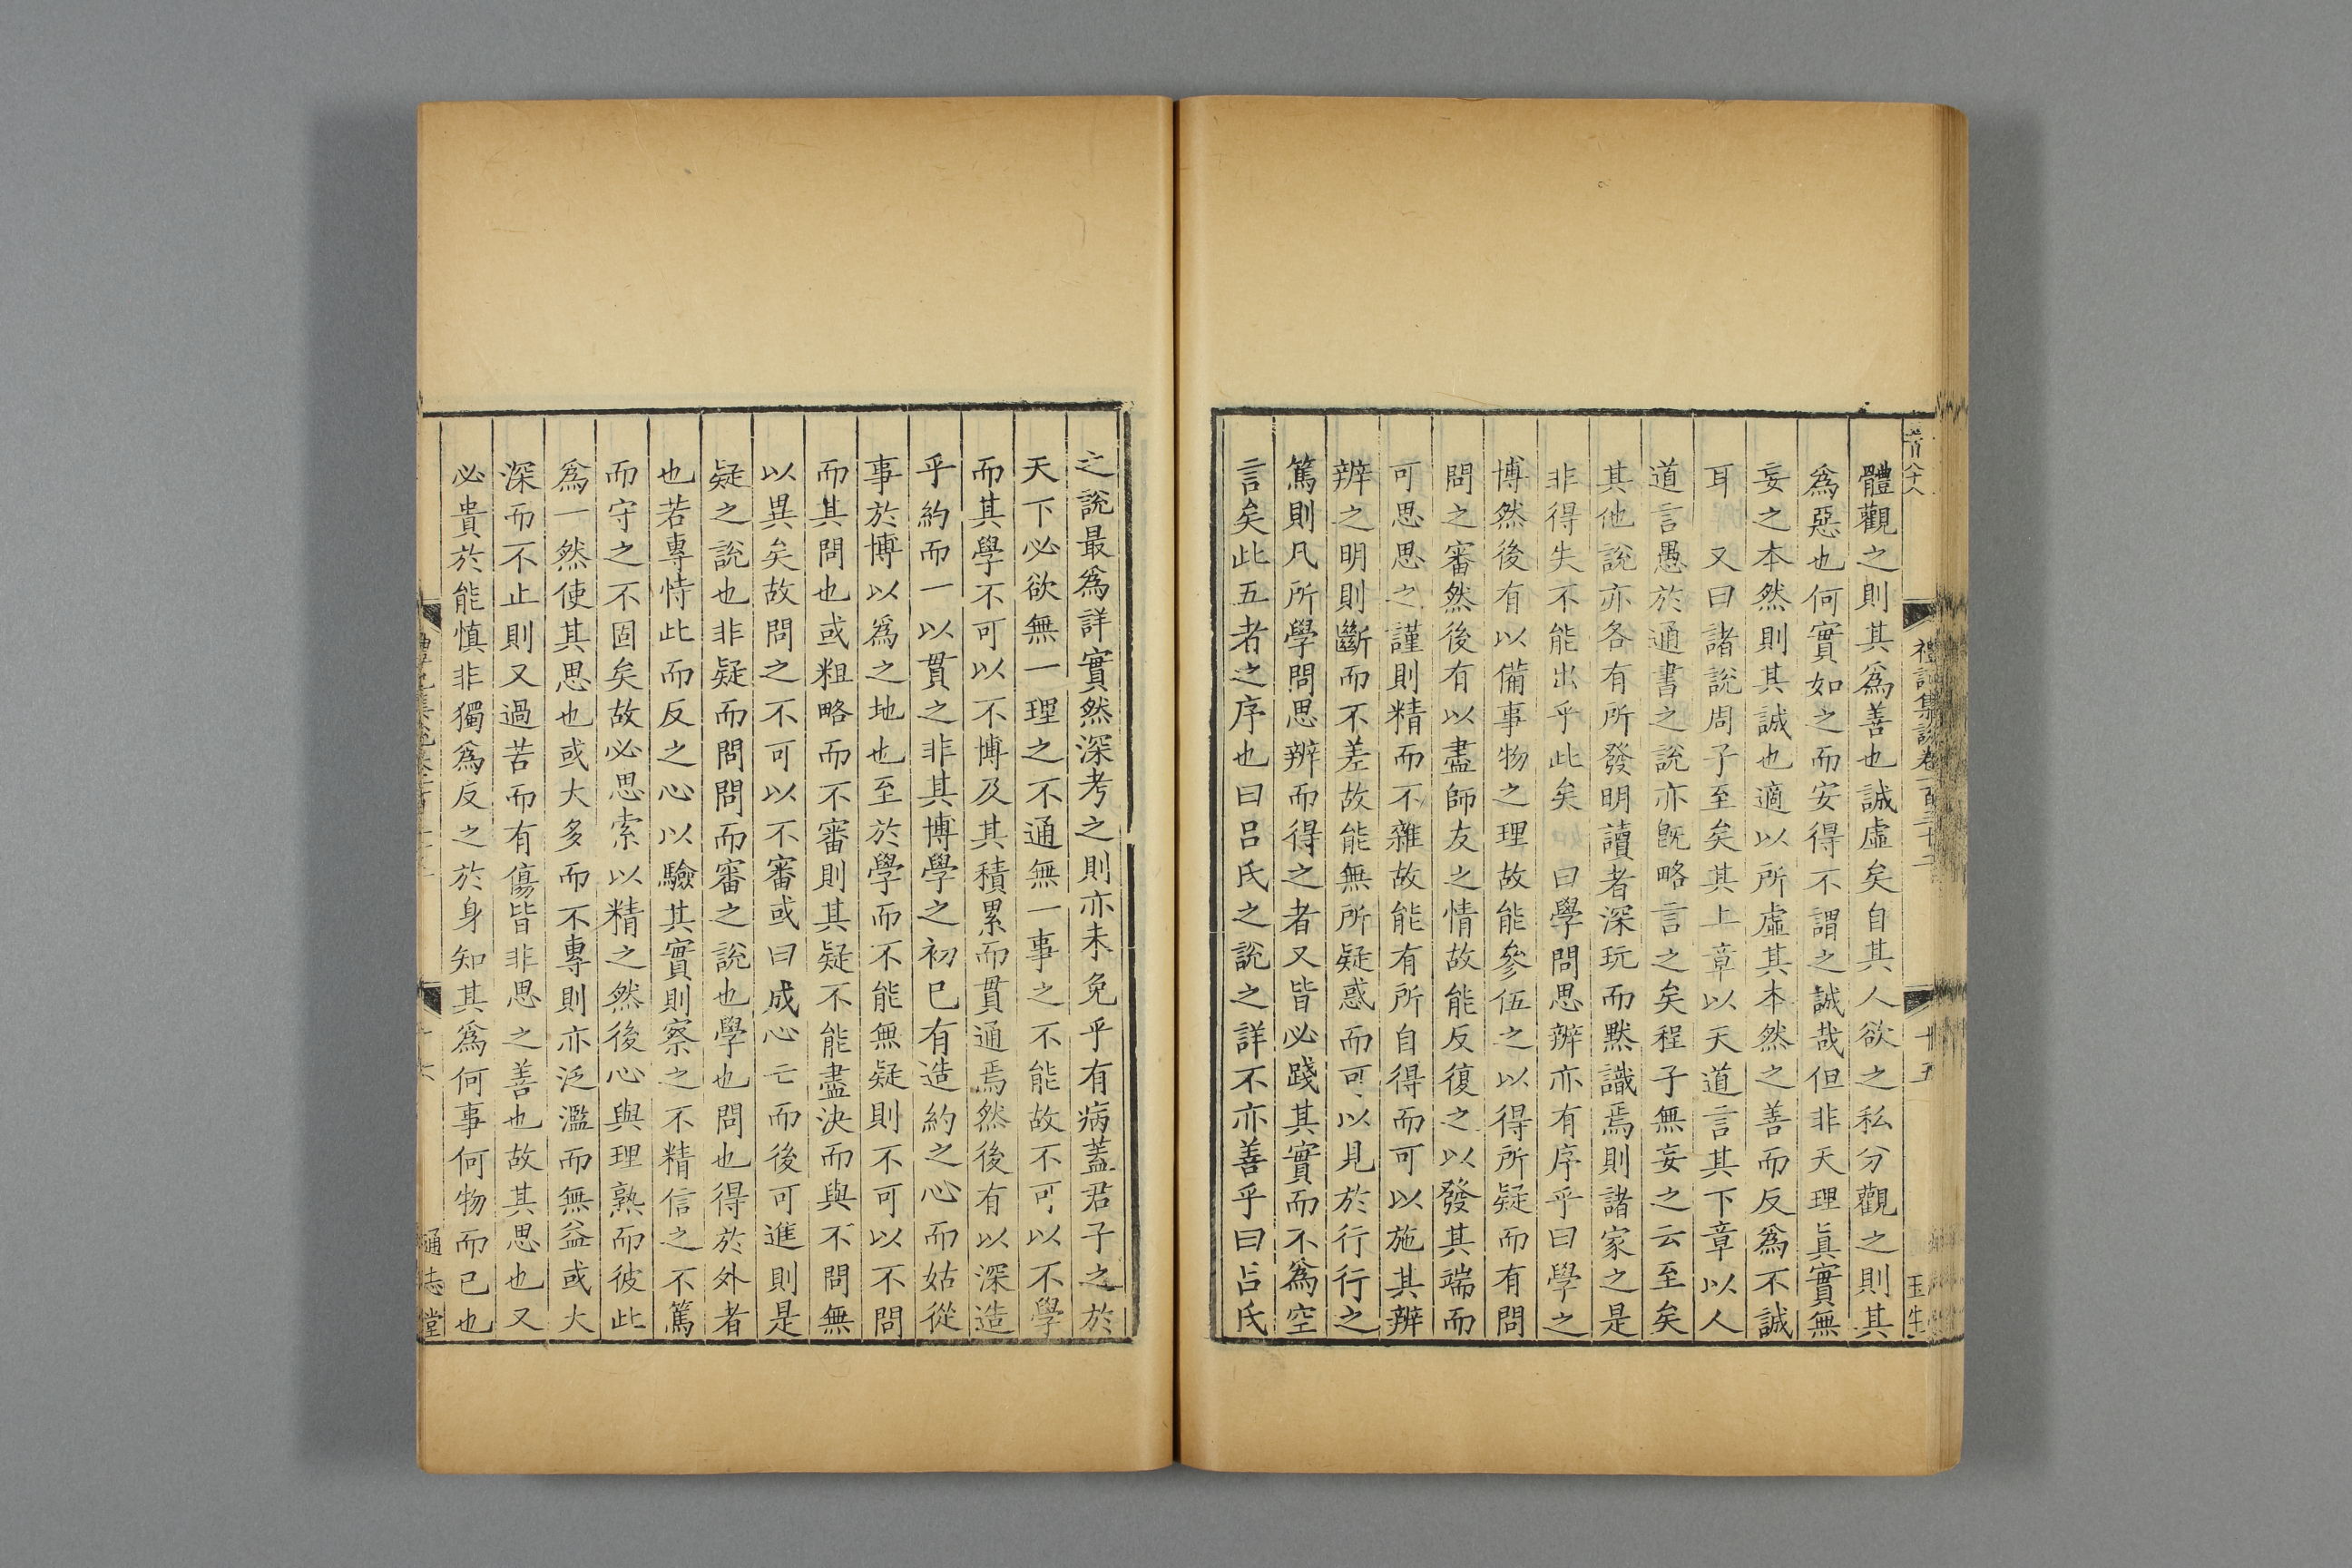 禮記集說卷一百三十
十五
體觀之則其爲善也誠虛矣自其人欲之私分觀之則其
爲惡也何實如之而安得不謂之誠哉但非天理眞實無
妄之本然則其誠也適以所虛其本然之善而反爲不誠
耳 又曰諸說周子至矣其上章以天道言其下章以人
道言愚於通書之說亦旣略言之矣程子無妄之云至矣
其他說亦各有所發明讀者深玩而黙識焉則諸家之是
非得失不能出乎此矣 曰學問思辨亦有序乎曰學之
博然後有以備事物之理故能參伍之以得所疑而有問
問之審然後有以盡師友之情故能反復之以發其端而
可思思之謹則精而不雜故能有所自得而可以施其辨
辨之明則斷而不差故能無所疑惑而可以見於行行之
篤則凡所學問思辨而得之者又皆必踐其實而不爲空
言矣此五者之序也曰呂氏之說之詳不亦善乎曰呂氏
之說最爲詳實然深考之則亦未免乎有病蓋君子之於
天下必欲無一理之不通無一事之不能故不可以不學
而其學不可以不博及其積累而貫通焉然後有以深造
乎約而一以貫之非其博學之初已有造約之心而姑從
事於博以爲之地也至於學而不能無疑則不可以不問
而其問也或粗略而不審則其疑不能盡決而與不問無
以異矣故問之不可以不審或曰成心亡而後可進則是
疑之說也非疑而問問而審之說也學也問也得於外者
也若專恃此而反之心以驗其實則察之不精信之不篤
而守之不固矣故必思索以精之然後心與理熟而彼此
爲一然使其思也或大多而不專則亦泛濫而無益或大
深而不止則又過苦而有傷皆非思之善也故其思也又
必貴於能慎非獨爲反之於身知其爲何事何物而已也
通志堂